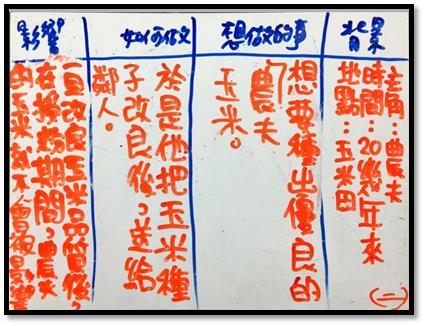 背景
主角：農夫
時間：20幾年來
地點：玉米田
(二)
想做的事
想要種出優良的
農夫
玉米。
如何做
於是他把玉米種
子改良後，送給
鄰人。
影響
改良玉米品質後，
在授粉期間，農夫
的玉米就不會被影響